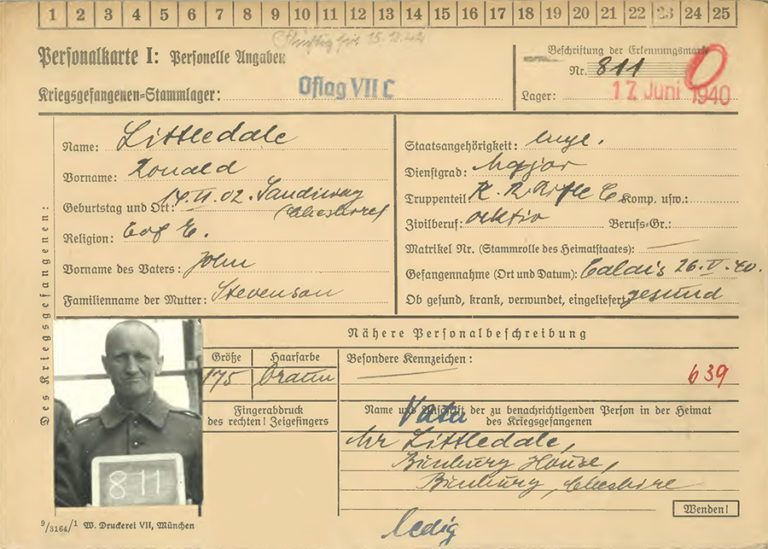 1 2 3 4 5 6 7 8 9 10 11 12 13 14 15 16 17 18 19 20 21 22 23 24 25
Flüchtig seit 15.10.42
Personalkarte I: Personelle Angaben
Kriegsgefangenen-Stammlager: Oflag VII C
Beschriftung der Erkennungsmarke
Nr. 811
Lager: 17. Juni 1940
O
Des Kriegsgefangenen:
Name: Littledale
Vorname: Ronald
Geburtstag und Ort: 14.VI.02. Sandiway
(Cheshire)
Religion: C of E.
Vorname des Vaters: John
Familienname der Mutter: Stevenson
Staatsangehörigkeit: engl.
Dienstgrad: Major
Truppenteil: K. R. Rifle C. Komp. usw.:
Zivilberuf: aktiv Berufs-Gr.:
Matrikel Nr. (Stammrolle des Heimatstaates): —
Gefangennahme (Ort und Datum): Calais 26.V.40.
Ob gesund, krank, verwundet, eingeliefert: gesund
Nähere Personalbeschreibung
Größe Haarfarbe Besondere Kennzeichen:
175 braun — 639
Fingerabdruck
des rechten! Zeigefingers
Name und Anschrift der zu benachrichtigenden Person in der Heimat
des Kriegsgefangenen
Vater
Mr Littledale,
Bunbury House,
Bunbury, Cheshire
Wenden!
811
9/3164/1 W. Druckerei VII, München
ledig